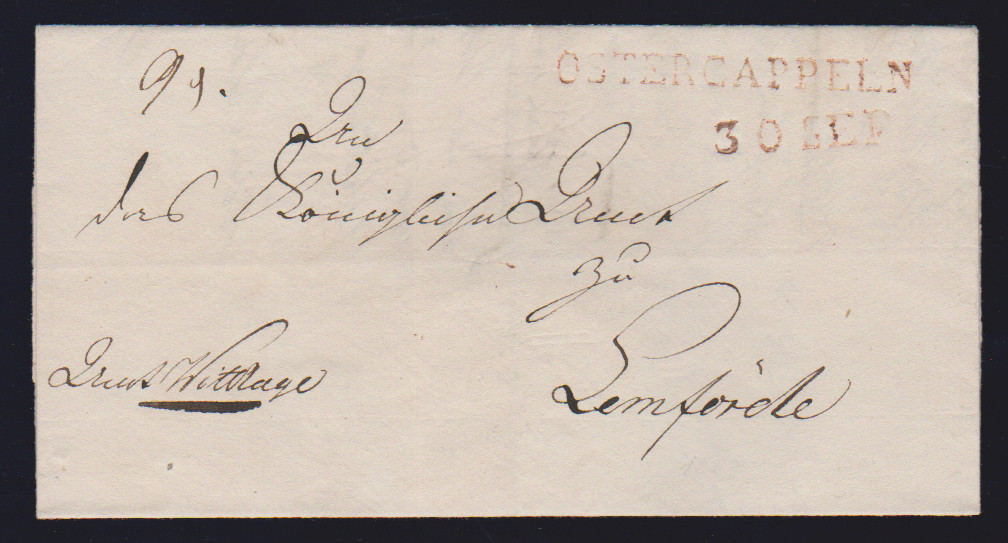 OSTERCAPPELN
30 SEP
An
das Königliche Amt
zu
Lemförde
Amt Wittlage